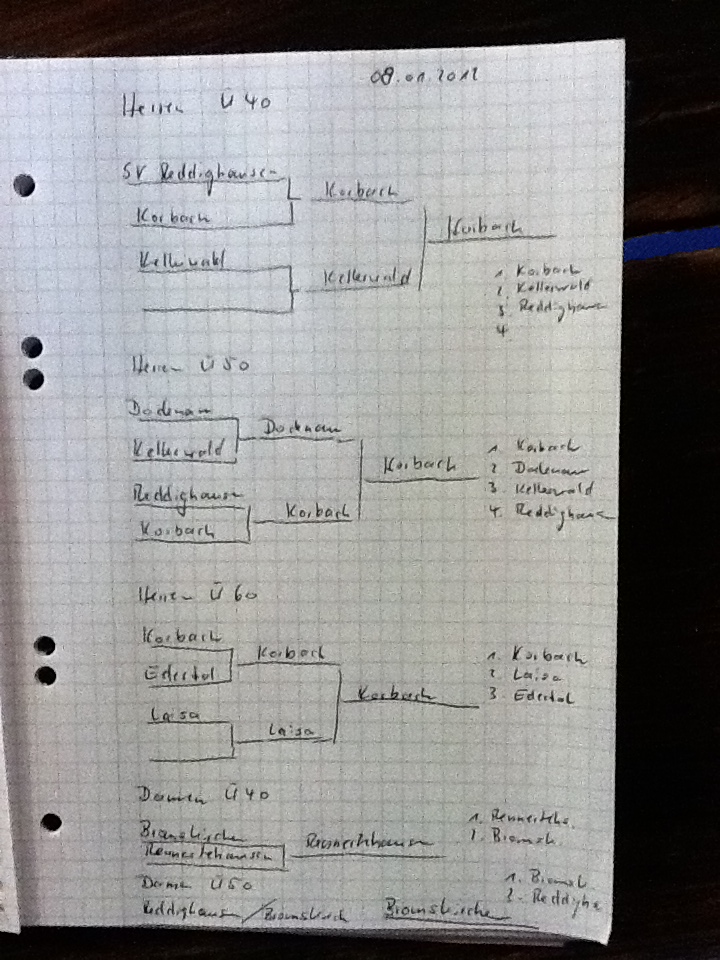 08.01.2012
Herren Ü 40
SV Reddighausen
Korbach
Korbach
Korbach
Kellerwald
Kellerwald
1. Korbach
2. Kellerwald
3. Reddighausen
4
Herren Ü 50
Dodenau
Dodenau
Kellerwald
Korbach
Reddighausen
Korbach
Korbach
1. Korbach
2. Dodenau
3. Kellerwald
4. Reddighause
Herren Ü 60
Korbach
Korbach
Edertal
Korbach
Laisa
Laisa
1. Korbach
2. Laisa
3. Edertal
Damen Ü 40
Bromskirchen
Rennertehausen
Rennertehausen
1. Rennerteha.
2. Bromsk.
Damen Ü 50
Reddighausen / Bromskirch
Bromskirchen
1. Bromsk.
2. Reddigha